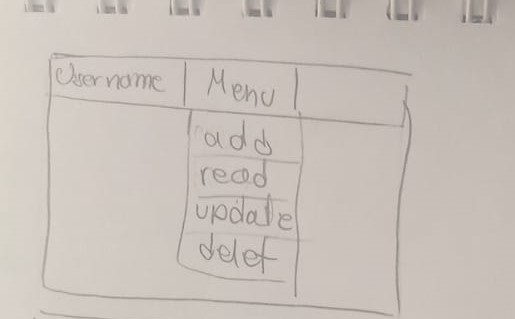 Username Menu
add
read
update
delet